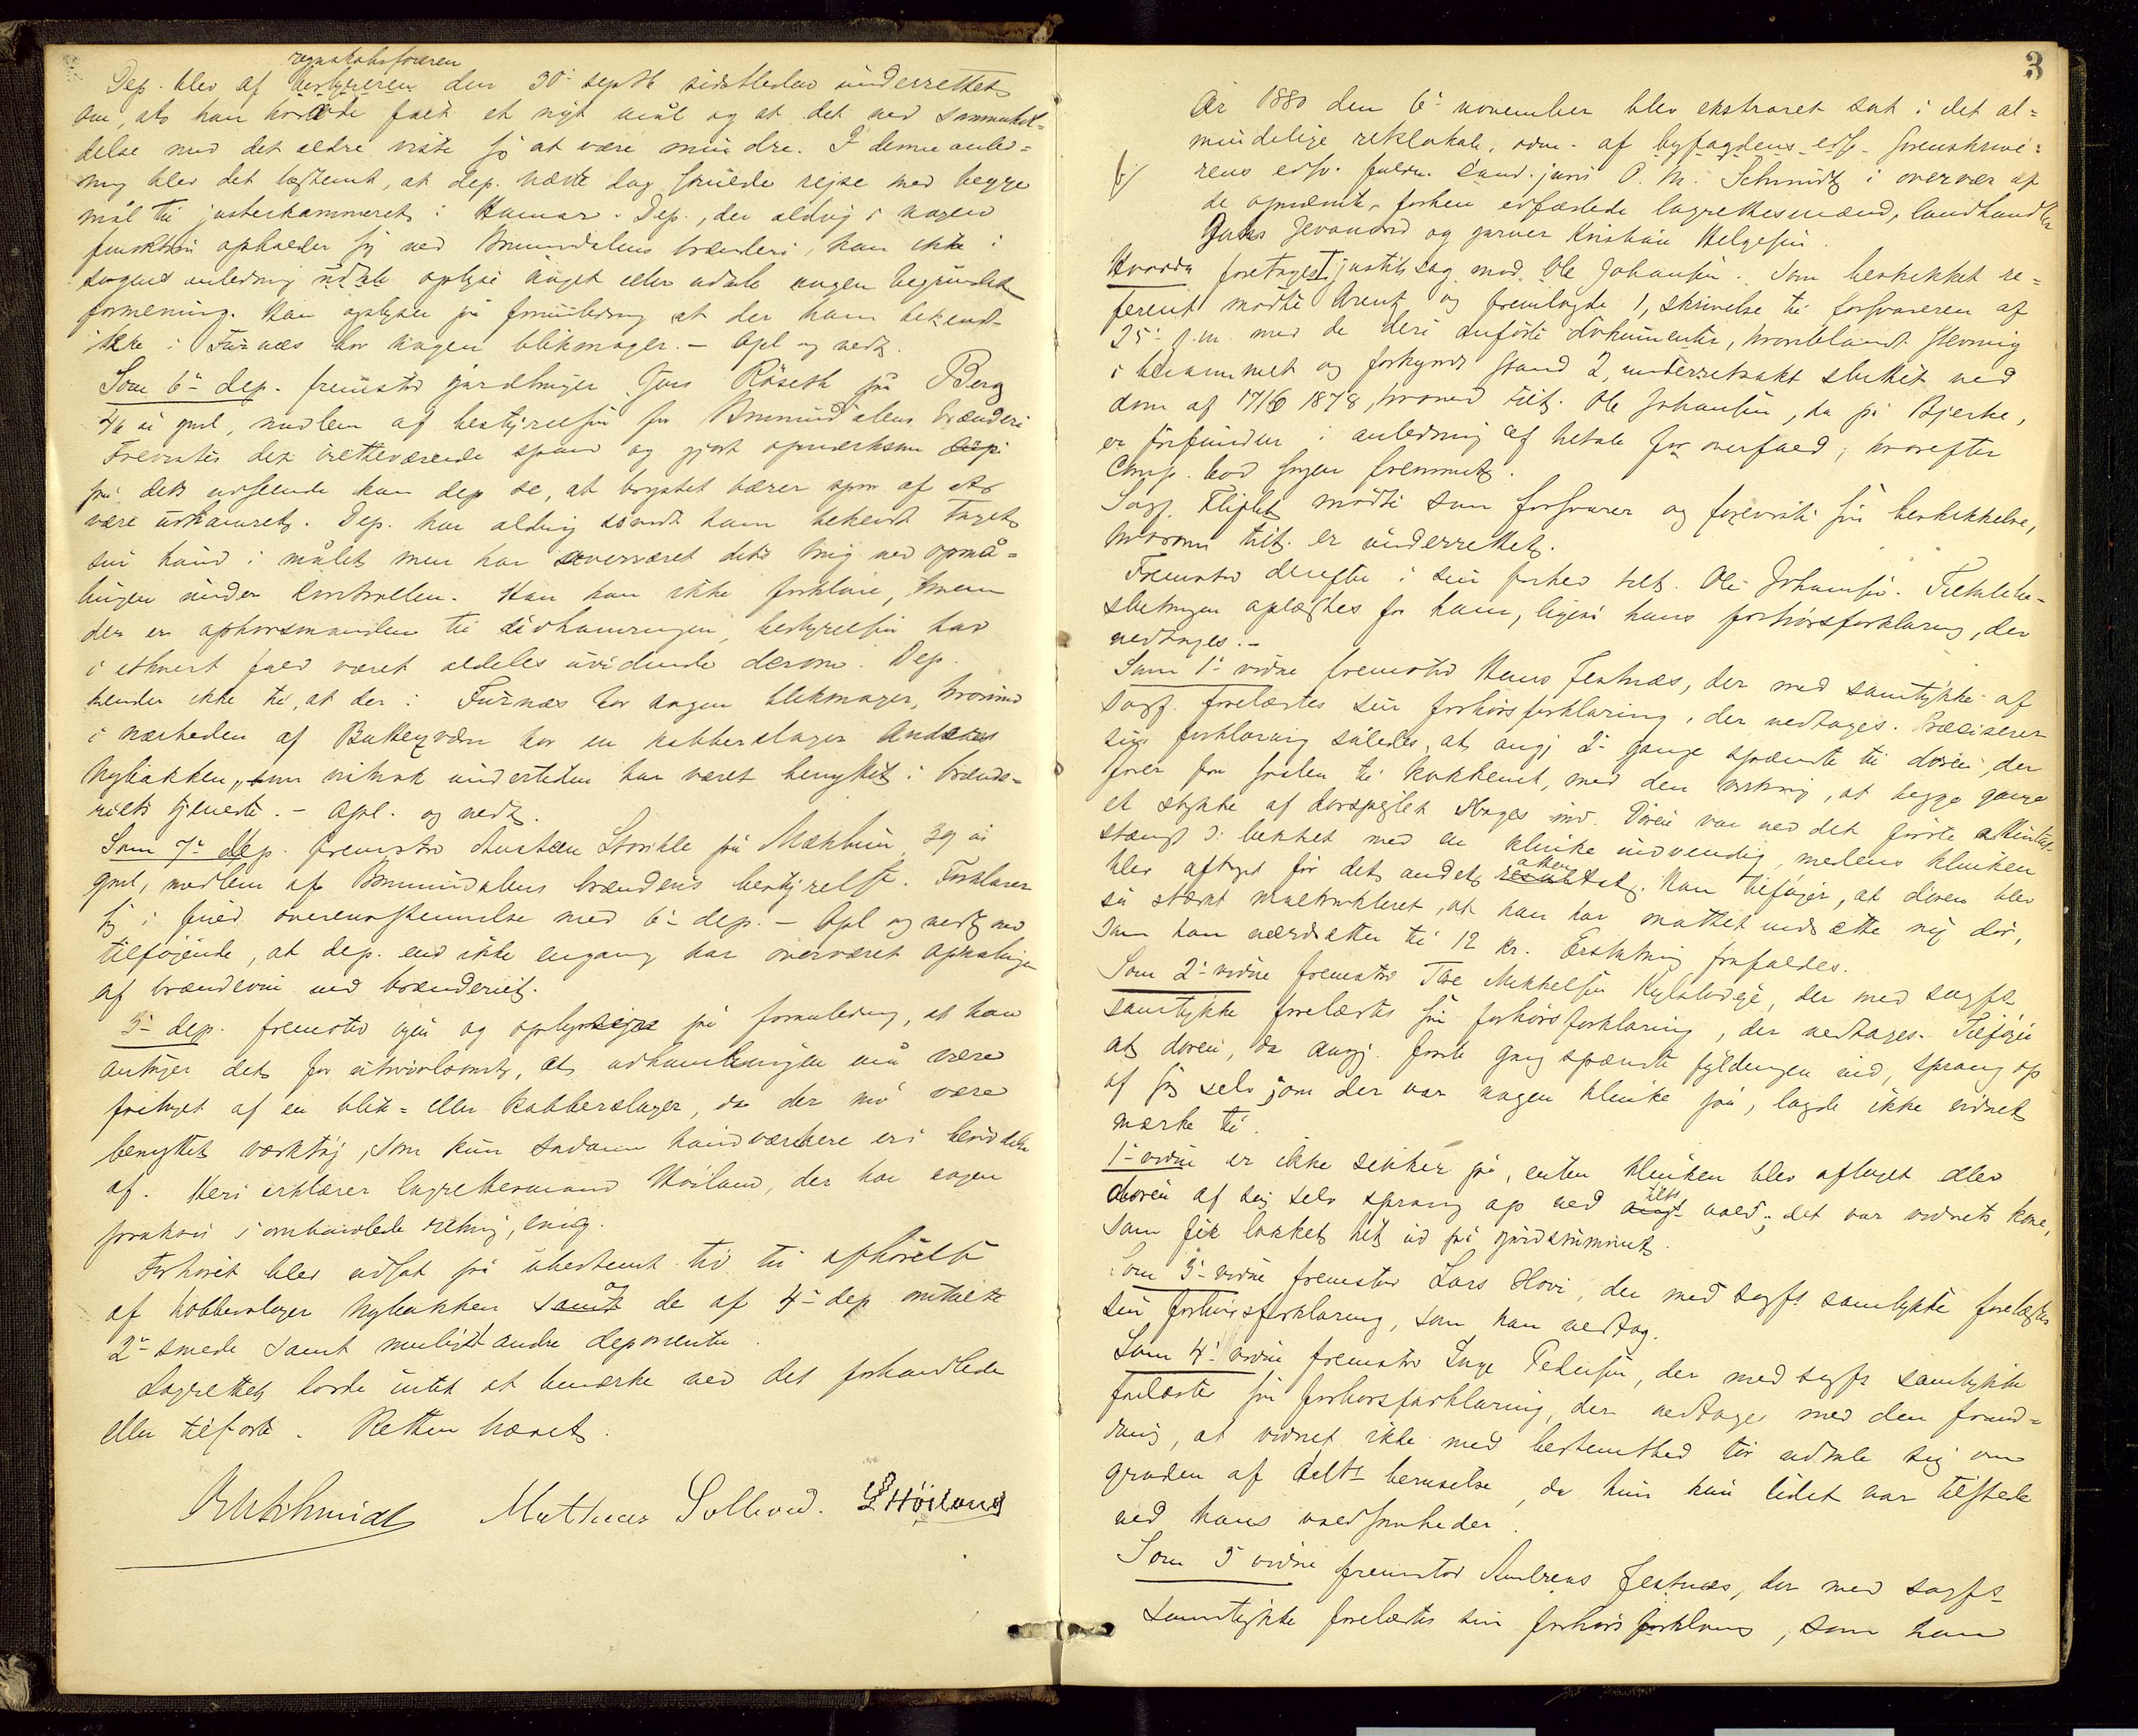 regnskabsføreren
Dep. blev af bestyreren den 30. septb sidstleden underrettet
om, at han havde fået et nyt mål og at det ved sammenhol-
delse med det ældre viste sig at være mindre. I denne anled-
ning blev det bestemt, at dep. næste dag skulde rejse med begge
mål til justerkammeret i Hamar. Dep., der aldrig i nogen
funktion opholder sig ved Brumundalens brænderi, kan ikke i
sagens anledning udtale oplyse noget eller udtale nogen begrundet
formening. Han oplyser på foranledning at der ham bekendt
ikke i Furnæs bor nogen blikmager. – Opl og vedt.
Som 6- dep. fremstod gårdbruger Jens Røseth på Berg
46 år gml, medlem af bestyrelsen for Brumundalens brænderi
Forevistes det i rette værende spand og gjort opmærksom
på dets udseende kan dep se, at brystet bærer spor af at
være udhamret. Dep. har aldrig såvidt ham bekendt taget
sin hånd i målet men har overværet dets brug ved opmå-
lingen under kontrollen. Han kan ikke forklare, hvem
der er ophavsmanden til udhamringen, bestyrelsen har
i ethvert fald været aldeles uvidende derom. Dep.
kender ikke til, at der i Furnæs bor nogen blikmager, hvorimod
i nærheden af bor en kobberslager Anders
Nybakken, som nitnok undertiden har været benyttet i brænde-
riets tjeneste. – Opl. og vedt.
Som 7- dep. fremstod Austen Storihle på Mæhlum 39 år
gml, medlem af Brumundalens brænderis bestyrelse. Forklarer
sig i fuld overensstemmelse med 6- dep. – Opl og vedt med
tilføjende, at dep. end ikke engang har overværet opmålingen
af brændevin ved brænderiet.
3- dep. fremstod igjen og oplyser på foranledning, at han
antager det for utvivlsomt, at udhamringen må være
foretaget af en blik- eller kobberslager, da der må være
benyttet værktøj, som kun sådanne håndværkere er i besiddelse
af. Heri erklærer lagrettesmand Høiland, der har nogen
praksis i omhandlede retning, enig.
Forhøret blev udsat på ubestemt tid til afhørelse
af kobberslager Nybakken samt og de af 4- dep omtalte
2- smede samt muligt andre deponenter.
Lagrettet havde intet at bemærke ved det forhandlede
eller tilførte. Retten hævet.
P M Schmidt Mathias Sollund. L Höiland
3
År 1880 den 6- november blev ekstraret sat i det al-
mindelige retslokale, adm. af byfogdens edsv. forenskrive-
rens edsv. fuldm. cand. juris P. M. Schmidt i overvær af
de opnævnte, forhen edfæstede lagrettesmænd, landhandler
Jevanord og garver Kristian Helgesen.
Hvorda foretoges justitssag mod Ole Johansen. Som beskikket re-
ferent mødte Arentz og fremlagde 1, skrivelse til forsvareren af
25- f.m. med de deri anførte dokumenter, hvoriblandt stevning
i berammet og forkyndt stand 2, underretsakt sluttet ved
dom af 17/6 1878, hvorved tilt. Ole Johansen, da på Bjerke,
er forfunden i anledning af betale for overfald; hvorefter
Comp. bad sagen fremmet.
Sagf. mødte som forsvarer og foreviste sin beskikkelse,
hvorom tilt. er underrettet.
Fremstod derefter i sin frihed tilt. Ole Johansen. Tiltalebe-
slutningen oplæstes for ham, ligeså hans forhørsforklaring, der
vedtoges. –
Som 1- vidne fremstod Hans Festnæs, der med samtykke af
sagf. forelæstes sin forhørsforklaring, der vedtages. Præciserer
sin forklaring således, at angj 2- gange spændte til døren, der
fører fra svalen til køkkenet, med den virkning, at begge gange
et stykke af dørspejlet kløges ind. Døren var ved det første attentat
stængt o: lukket med en klinke indvendig, medens klinken
blev aftaget før det andet attentat. Han tilføjer, at døren blev
så stærkt maltrakteret, at han har måttet indsætte ny dør,
som han værdsætter til 12 kr. Erstatning frafaldes.
Som 2- vidne fremstod Mikkelsen , der med sagfs
samtykke forelæstes sin forhørsforklaring, der vedtages. Tilføjer
at døren, da angj. første gang spændte fyldingen ind, sprang op
af sig selv; om der var nogen klinke på, lagde ikke vidnet
mærke til.
1- vidne er ikke sikker på, enten klinken blev aftaget eller
døren af sig selv sprang op ved tilts vold; det var vidnets kone,
som fik lokket tilt ud på gårdsrummet.
Som 3- vidne fremstod Lars Hovi, der med sagfs samtykke forelæstes
sin forhørsforklaring, som han vedtog.
Som 4- vidne fremstod Inge Pedersen, der med sagfs samtykke
forelæstes sin forhørsforklaring, der vedtages med den foran-
dring, at vidnet ikke med bestemthed tør udtale sig om
graden af tilts beruselse, da hun kun lidet var tilstede
ved hans voldsomheder.
Som 5 vidne fremstod Andreas Festnæs, der med sagfs
samtykke forelæstes sin forhørsforklaring, som han